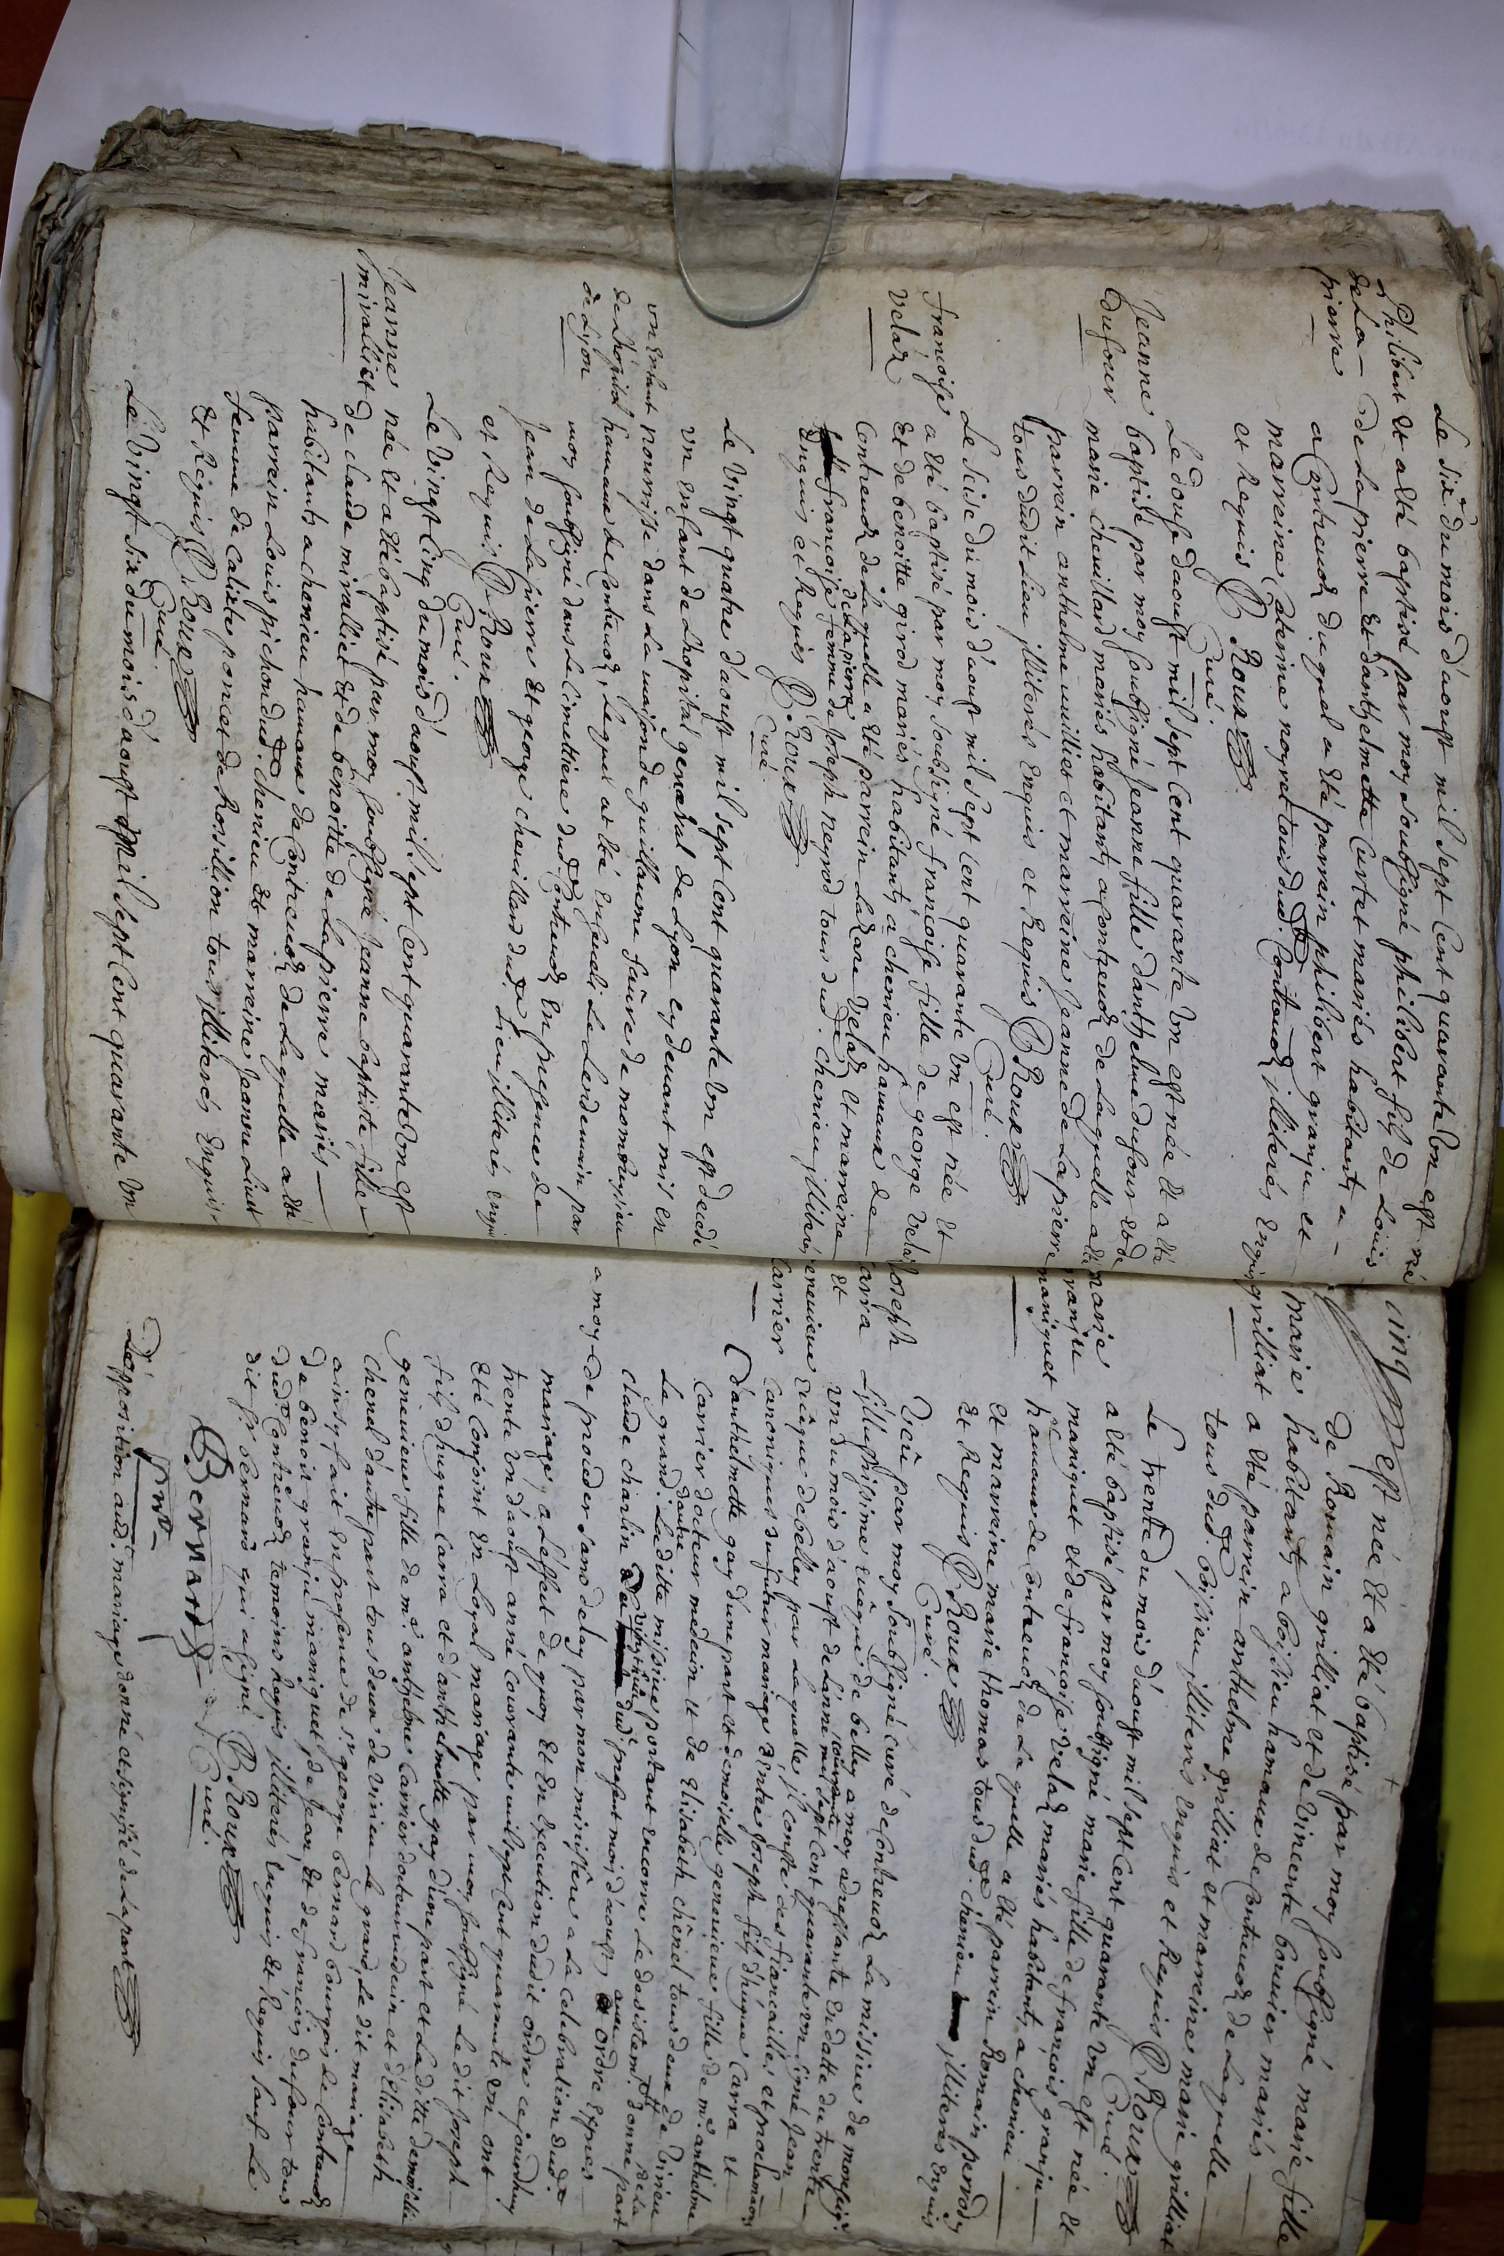 Le six.e du mois d'aoust mil sept cent quarante un est né
Philibert et a été baptisé par moy soubsigné philibert fils de Louis
de La- de La pierre et d'anthelmette Curtet mariés habitants a-
pierre
a Contrevoz duquel a été parrein philibert granju et
marreine Caterine noyret tous dud. Contrevoz illiterés enquis
et Requis P. Roux
Curé.
Le douse d'aoust mil sept cent quarante un est née et a été
Jeanne baptisé par moy soubsigné Jeanne fille d'anthelme dufour et de
dufour marie cheuillard mariés habitants a Contrevoz de Laquelle a été
parrein anthelme uuilliet et marreine Jeanne De La pierre
tous dudit Lieu illiterés enquis et Requis P. Roux
Curé.
Le seise du mois d'aoust mil sept cent quarante un est née et
francoise a été baptisé par moy soubsigné francoise fille de george Velaz
Velaz et de benoitte girod mariés habitants a chemieu hameau de
Contrevoz de Laquelle a été parrein Lazare Velaz et marreine
francoise de La pierre femme de Joseph neyrod tous dud. chemieu illiterés
enquis et Requis P. Roux
Curé.
Le vingt quatre d'aoust mil sept cent quarante un est decedé
un enfant de L'hopital general de Lyon cy devant mis en
un enfant nourrisse dans La maison de guillaume faure de
de L'hopital hameau de Contrevoz, Lequel at été enseueli Le Lendemain par
de Lyon moy soubsigné dans Le Cimettiere dud. Contrevoz en presence de
Jean de La pierre et george cheuillard dud. Lieu illiterés enquis
et Requis. P. Roux
Curé.
Le vingt cinq du mois d'aoust mil sept cent quarante un est
Jeanne née et a été baptisé par moy soubsigné Jeanne baptiste fille
mirailliet de claude mirailliet et de benoitte de La pierre mariés
habitants a chemieu hameau de Contrevoz de Laquelle a été
parrein Louis pichon dud. chemieu et marreine Jeanne
femme de Calixte poncet de Rossillion tous illiterés enquis
et Requis P. Roux
Curé.
Le vingt six du mois d'aoust mil sept cent quarante un
cinq
est née et a été baptisé par moy soubsigné marie fille
marie de Romain grilliat et de vincente bouuier mariés
grilliat habitants a boissieu hameau de Contrevoz de Laquelle
a été parrein anthelme grilliat et marreine marie grilliat
tous dud. boissieu illiterés enquis et Requis P. Roux
Curé.
Le trente du mois d'aoust mil sept cent quarante un est née et
marie a été baptisé par moy soubsigné marie fille de françois granju
granju maniguet et de francoise Velaz mariés habitants a chemieu
maniguet hameau de Contrevoz de Laquelle a été parrein Romain perrod
et marreine marie thomas tous dud. chemieu illiterés enquis
et Requis P. Roux
Curé.
Veû par moy soubsigné curé de Contrevoz La missive de monseig.r
Joseph L'illustrissime eueque de belley a moy adressante en datte du trente
Carra un du mois d'aoust de L'année courante mil sept cent quarante un signé Jean
et eueque de belley par Laquelle il conste des fiancailles et proclamations
geneuieue canoniques du futur mariage d'entre Joseph fils d'hugue Carra et
Carrier d'anthelmette gay d'une part et demoiselle geneuieue fille de m.e anthelme
Carrier docteur medecin et de Elisabeth chênel tous deux de virieu
Le grand. Ladite missive portant encorre Le desistem. donné de La part
claude charlin d'autre dud. present mois d'aoust auec ordre expres
a moy de proceder sans delay par mon ministere a La Celebration dud.
mariage, a L'effect de quoy et en execution dudit ordre cejourdhuy
trente un d'aoust anné Courante mil sept cent quarante un ont
été conjoint en Loyal mariage par moy soubsigné Le dit Joseph
fils d'hugue Carra et d'anthelmette gay d'une part et Laditte demoiselle
geneuieue fille de m.e anthelme Carrier docteur medecin et d'Elisabeth
chenel d'autre part tous deux de virieu Le grand, Le dit mariage
ainsy fait en presence de s.r george bernard bourgois de Contrevoz
de benoit granju maniguet, de Jean et de françois dufour tous
dud. Contrevoz temoins Requis illiterés enquis et Requis sauf Le
dit s.r bernard qui a signé. P. Roux
Curé.
Bernard
D'opposition aud. mariage donné et signifié de La part